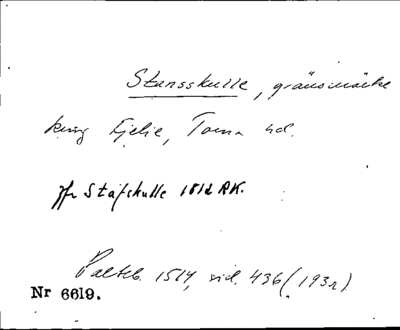 Stansskulle, gränsmärke
kring Fjelie, Torna hd.
jfr Stafskulle 1812 RK.
Palteb. 1514, sid. 436 (193r)
Nr 6619.